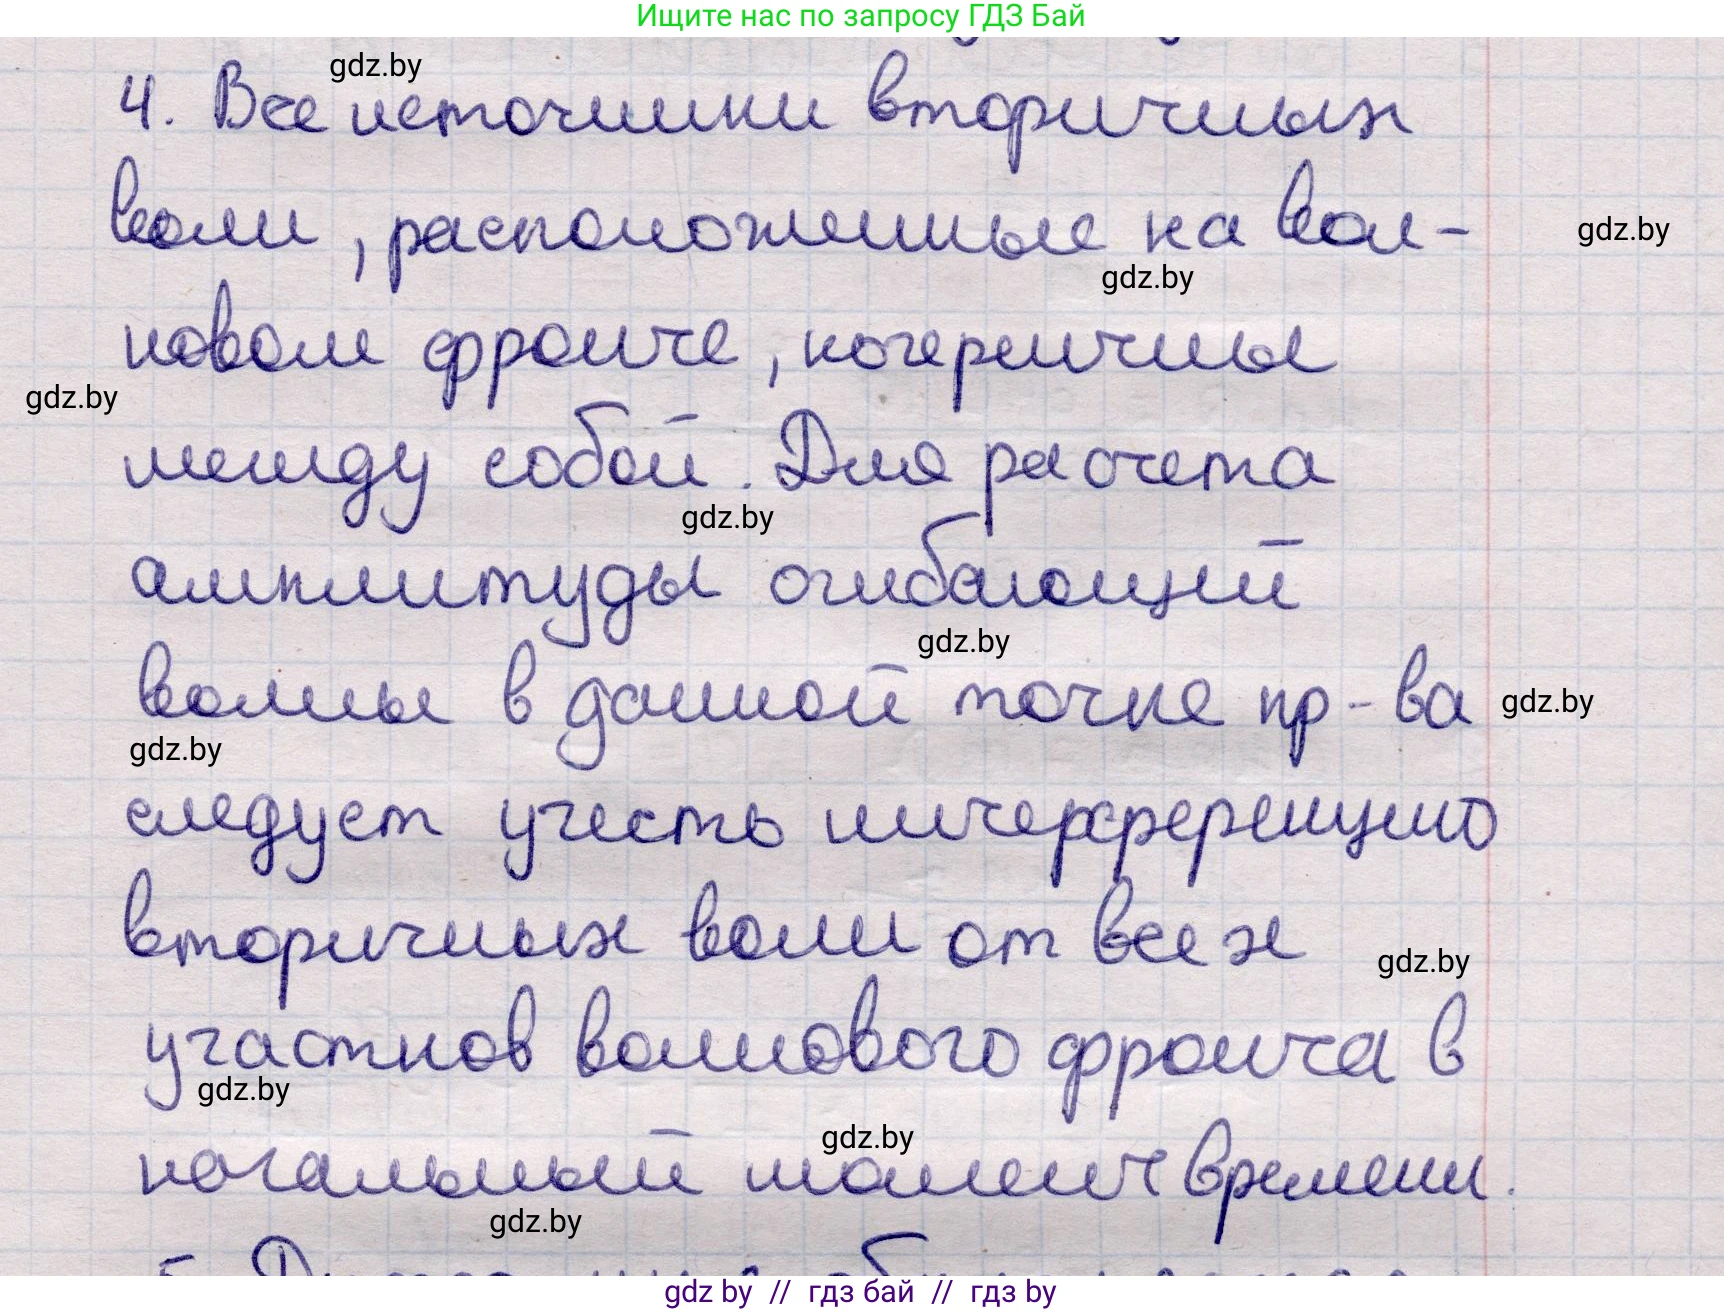 Ищите нас по запросу ГДЗ Бай
gdz.by
4. Все источники вторичных
волн, расположенные на вол-
gdz.by
gdz.by
новом фронте, когерентны
gdz.by
между собой. Для расчета
gdz.by
амплитуды огибающий
gdz.by
волны в данной точке пр-ва
gdz.by
gdz.by
следует учесть интерференцию
вторичных волн от всех
gdz.by
участков волнового фронта в
gdz.by
gdz.by
начальный момент времени.
gdz.by
gdz by // гдз бай // гдз by